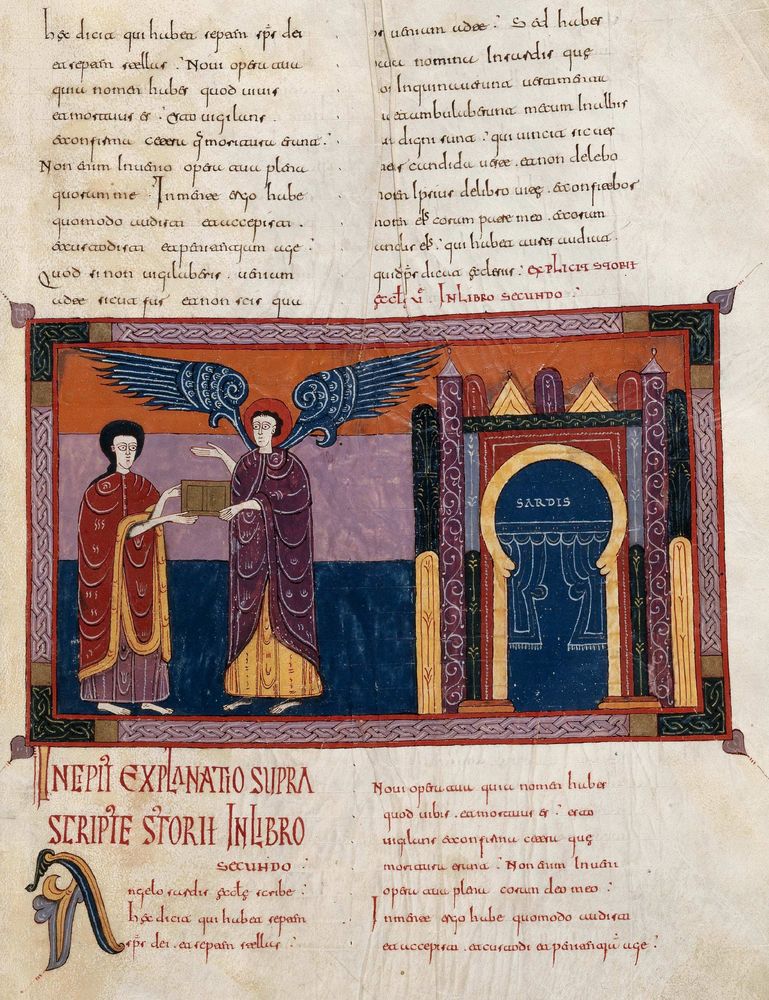 hęc dicit qui habet septem sps dei
et septem stellas : Novi opera tua
quia nomen habes quod vivis
et mortuus es : Esto vigilans
et confirma cetera q̄ moritura erant :
Non enim invenio opera tua plena
In mente ergo habe
quomodo audisti et accepisti .
et custodi et penitentiam age :
Quod si non vigilaberis . veniam
ad te sicut fur et non scis qua
veniam ad te : Sed habes
nomina in sardis quę
inquinaverunt vestimenta
et ambulaberunt mecum in albis
digni sunt : qui vincit sic ves
candida veste . et non delebo
ipsius de libro vitę . et confitebor
coram patre meo . et coram
qui habet aures audiat
dicat ęclesiis : EXPLICIT STORIA
IN LIBRO SECUNDO :
SARDIS
INCIPIT EXPLANATIO SUPRA
SCRIPTE STORIE IN LIBRO
SECUNDO
Angelo sardis ęclę scribe :
hęc dicit qui habet septem
sps dei . et septem stellas :
Novi opera tua quia nomen habes
quod vibis . et mortuus es : esto
vigilans et confirma cetera quę
moritura erant : Non enim inveni
opera tua plena coram deo meo :
In mente ergo habe quomodo audisti
et accepisti . et custodi et penitentiā age :